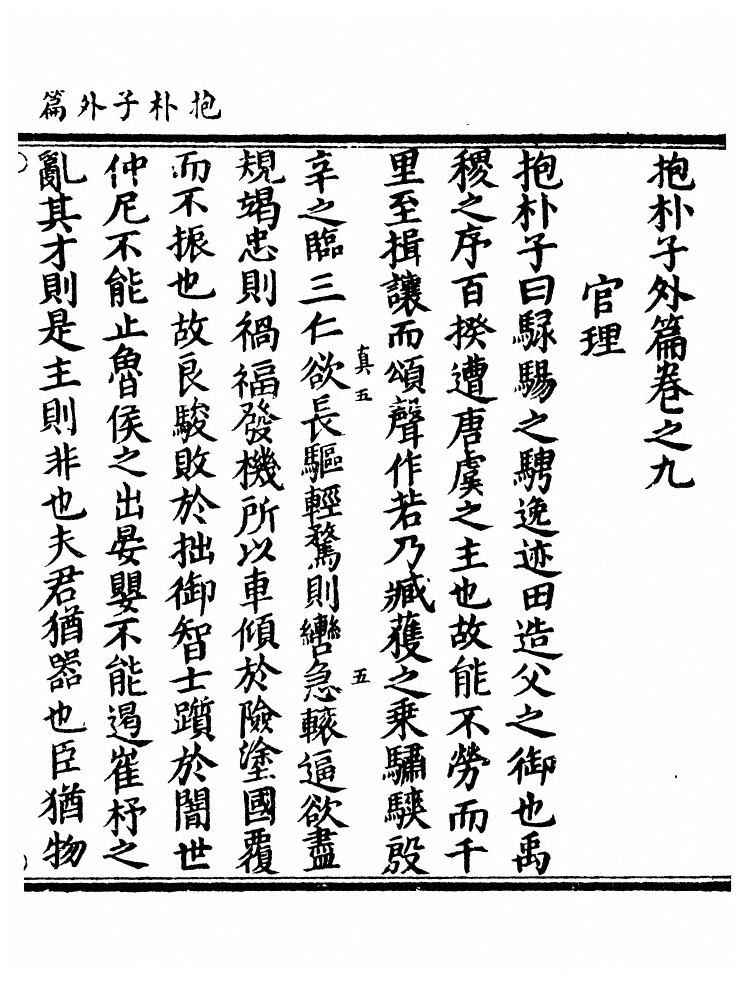 抱朴子外篇
抱朴子外篇卷之九
官理
抱朴子曰騄駬之騁逸迹由造父之御也禹
稷之序百揆遭唐虞之主也故能不勞而千
里至揖讓而頌聲作若乃臧獲之乘驌騻殷
真五
五
辛之臨三仁欲長驅輕騖則轡急轅逼欲盡
規竭忠則禍福發機所以車傾於險塗國覆
而不振也故良駿敗於拙御智士躓於闇世
仲尼不能止魯侯之出晏嬰不能遏崔杼之
亂其才則是主則非也夫君猶器也臣猶物